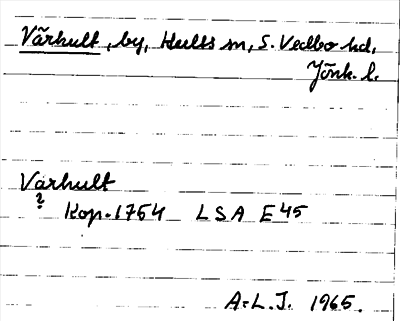 Vårhult, by, Hults sn, S. Vedbo hd,
Jönk. l.
Varhult
?
Kop. 1754 LSA E45
A-L.J. 1965.